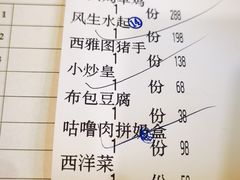 1 份 288
风生水起
1 份 198
西雅图猪手
1 份 138
小炒皇
1 份 68
布包豆腐
1 份 38
咕噜肉拼奶盒
1 份 98
西洋菜
58